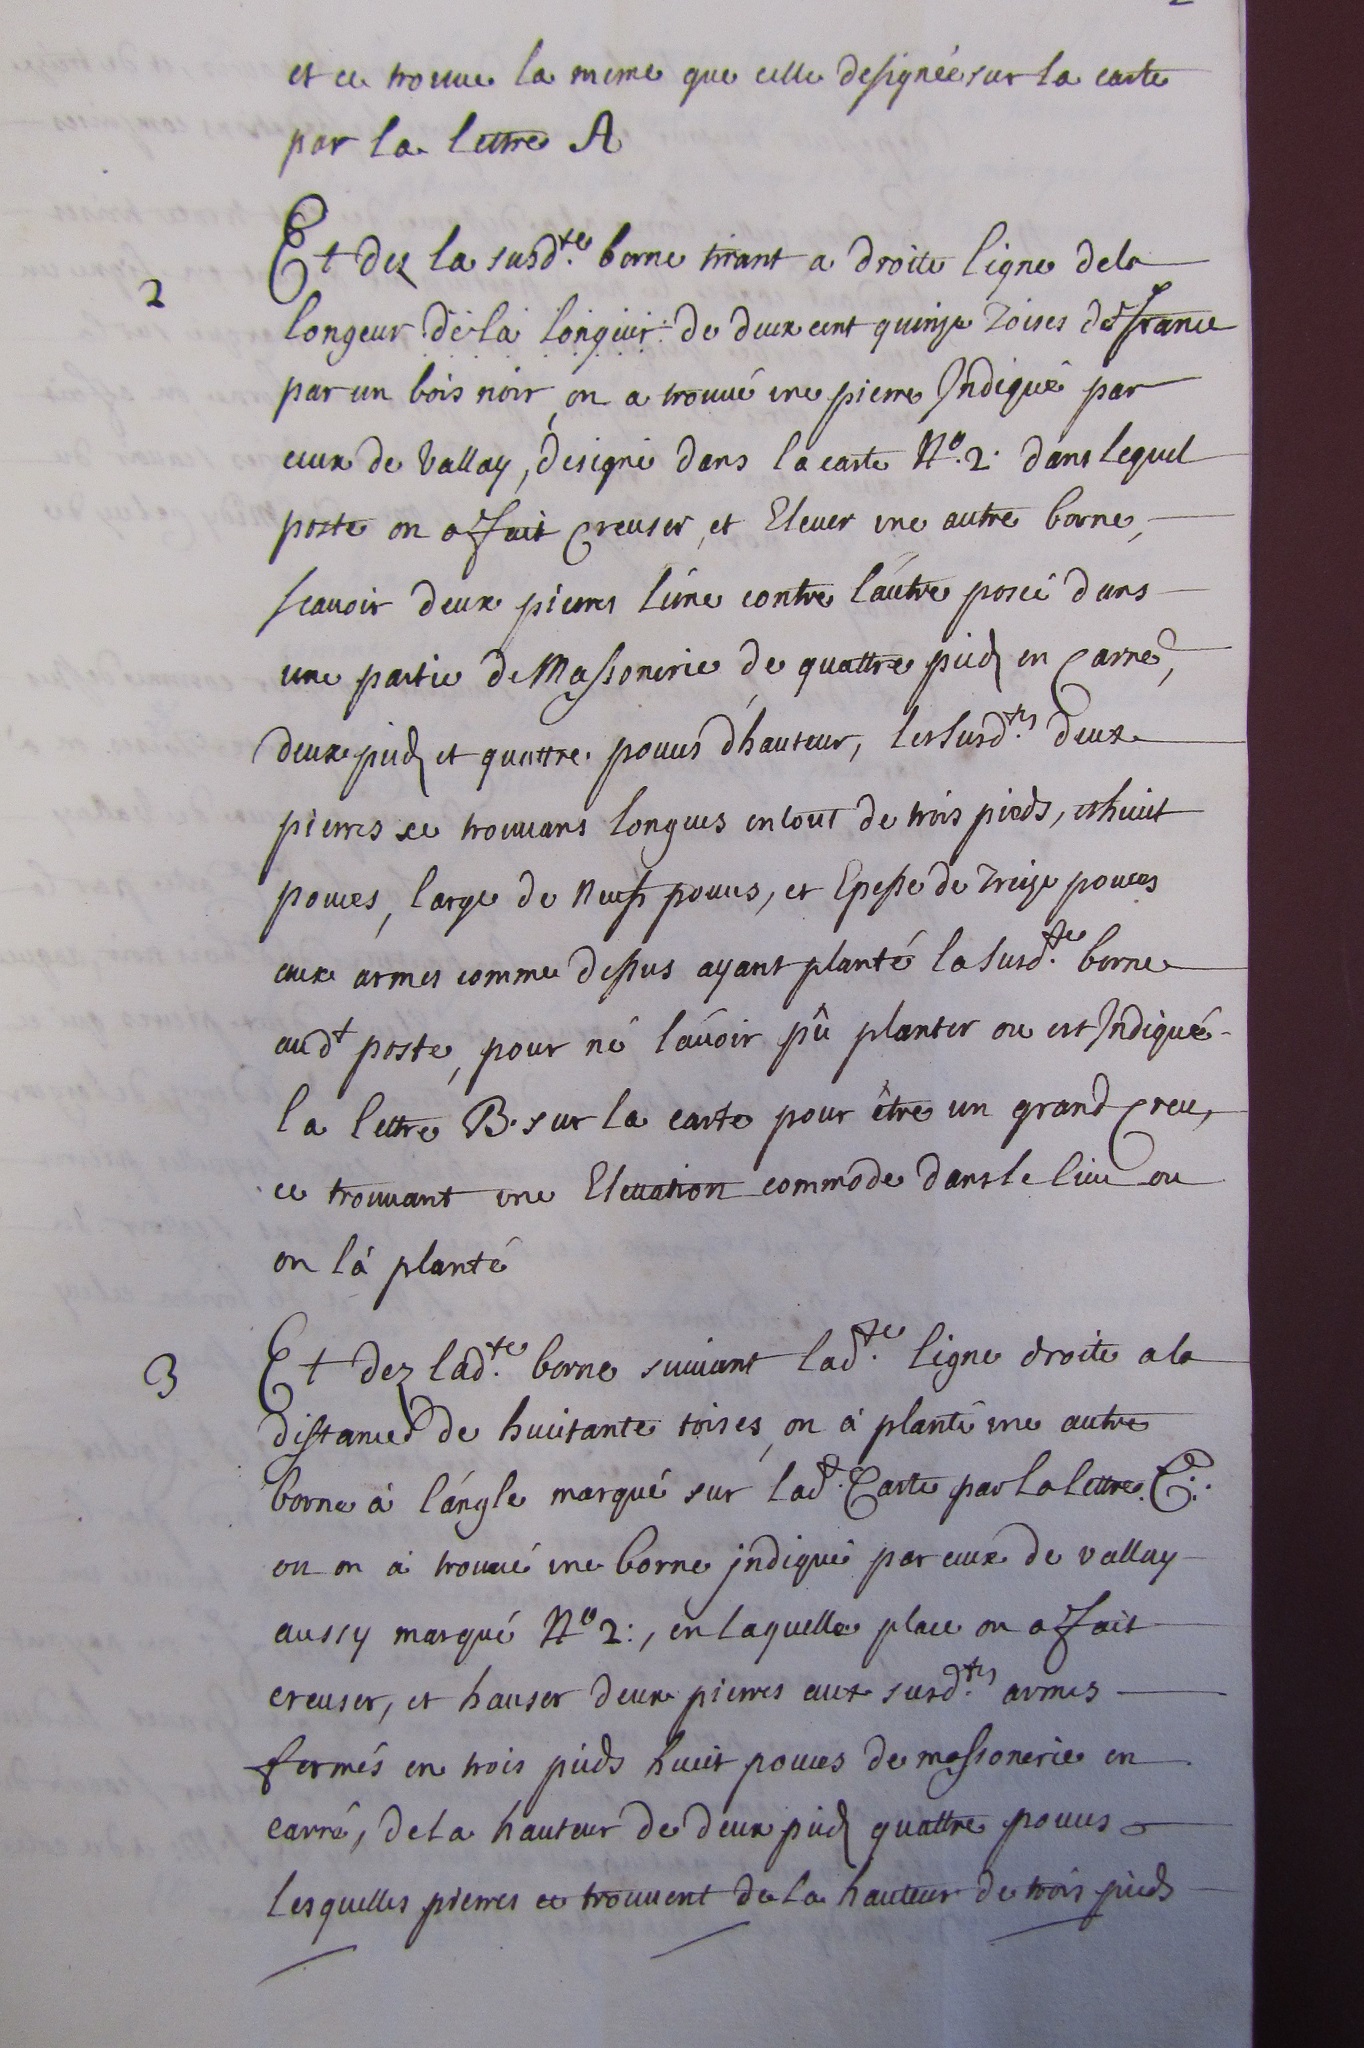 et ce trouue la meme que celle designée sur la carte
par la lettre A
2
Et dez la susd.te borne tirant a droite ligne dela
longeur de la longeur: de deux cent quinze Toises de france
par un bois noir, on a trouué une pierre Indiqué par
ceux de Vallay, designé dans la carte N.o 2. dans lequel
poste on a fait Creuser, et Eleuer une autre borne,
scauoir deux pierres l'une contre l'autre poseé dans
une partie de Massonerie de quattre pieds en Carré,
deux pieds et quattre pouces d'hauteur, les susd.tes deux
pierres ce trouuans longues en tout de trois pieds, et huit
pouces, large de Neuf pouces, et Epesse de Treize pouces
aux armes comme dessus ayant planté la susd.te borne
aud.t poste, pour né l'auoir pû planter ou est Indiqué
la lettre B. sur la carte pour être un grand Creu,
ce trouuant une Eleuation commode dans le lieu ou
on l'à planté
3
Et dez lad.te borne suiuant lad.te ligne droite a la
distance de huitante toises, on à planté une autre
borne à l'angle marqué sur lad.te Carte par la lettre C:
ou on à trouué une borne jndiqué par ceux de vallay
aussy marqué N.o 2:, en laquelle place on a fait
creuser, et hauser deux pierres aux susd.tes armes
fermés en trois pieds huit pouces de massonerie en
carré, de la hauteur de deux pieds quattre pouces
lesquelles pierres ce trouuent de la hauteur de trois pieds